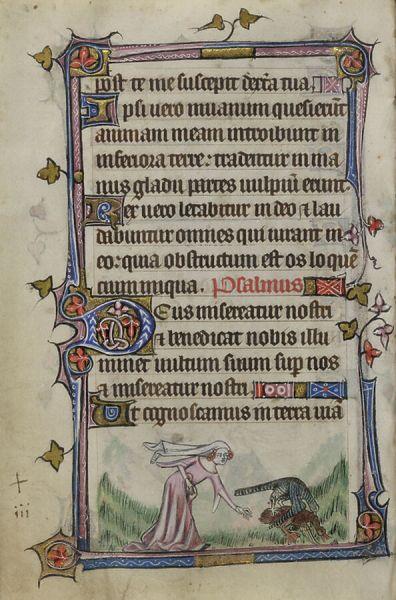 post te me suscepit dextra tua.
Ipsi vero in uanum quesierūt
animam meam introibunt in
inferiora terre: tradentur in ma
nus gladii partes uulpiū erunt.
Rex uero letabitur in deo & lau
dabuntur omnes qui iurant in
eo: quia obstructum est os loquē
tium iniqua. Psalmus
Deus misereatur nostri
& benedicat nobis illu
minet uultum suum sup nos
& misereatur nostri.
Ut cognoscamus in terra uiā
+
iii